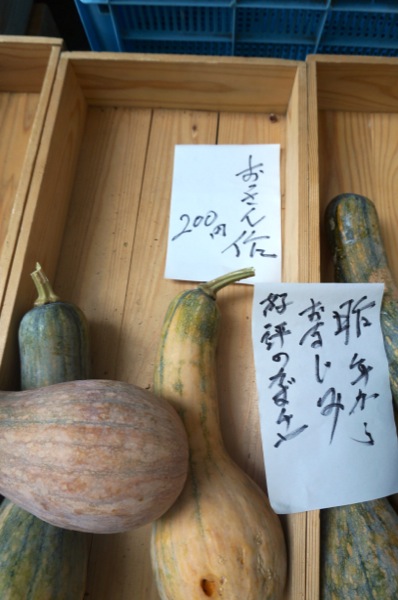 おさん作
200円
昨年から
おなじみ
好評のカボチャ